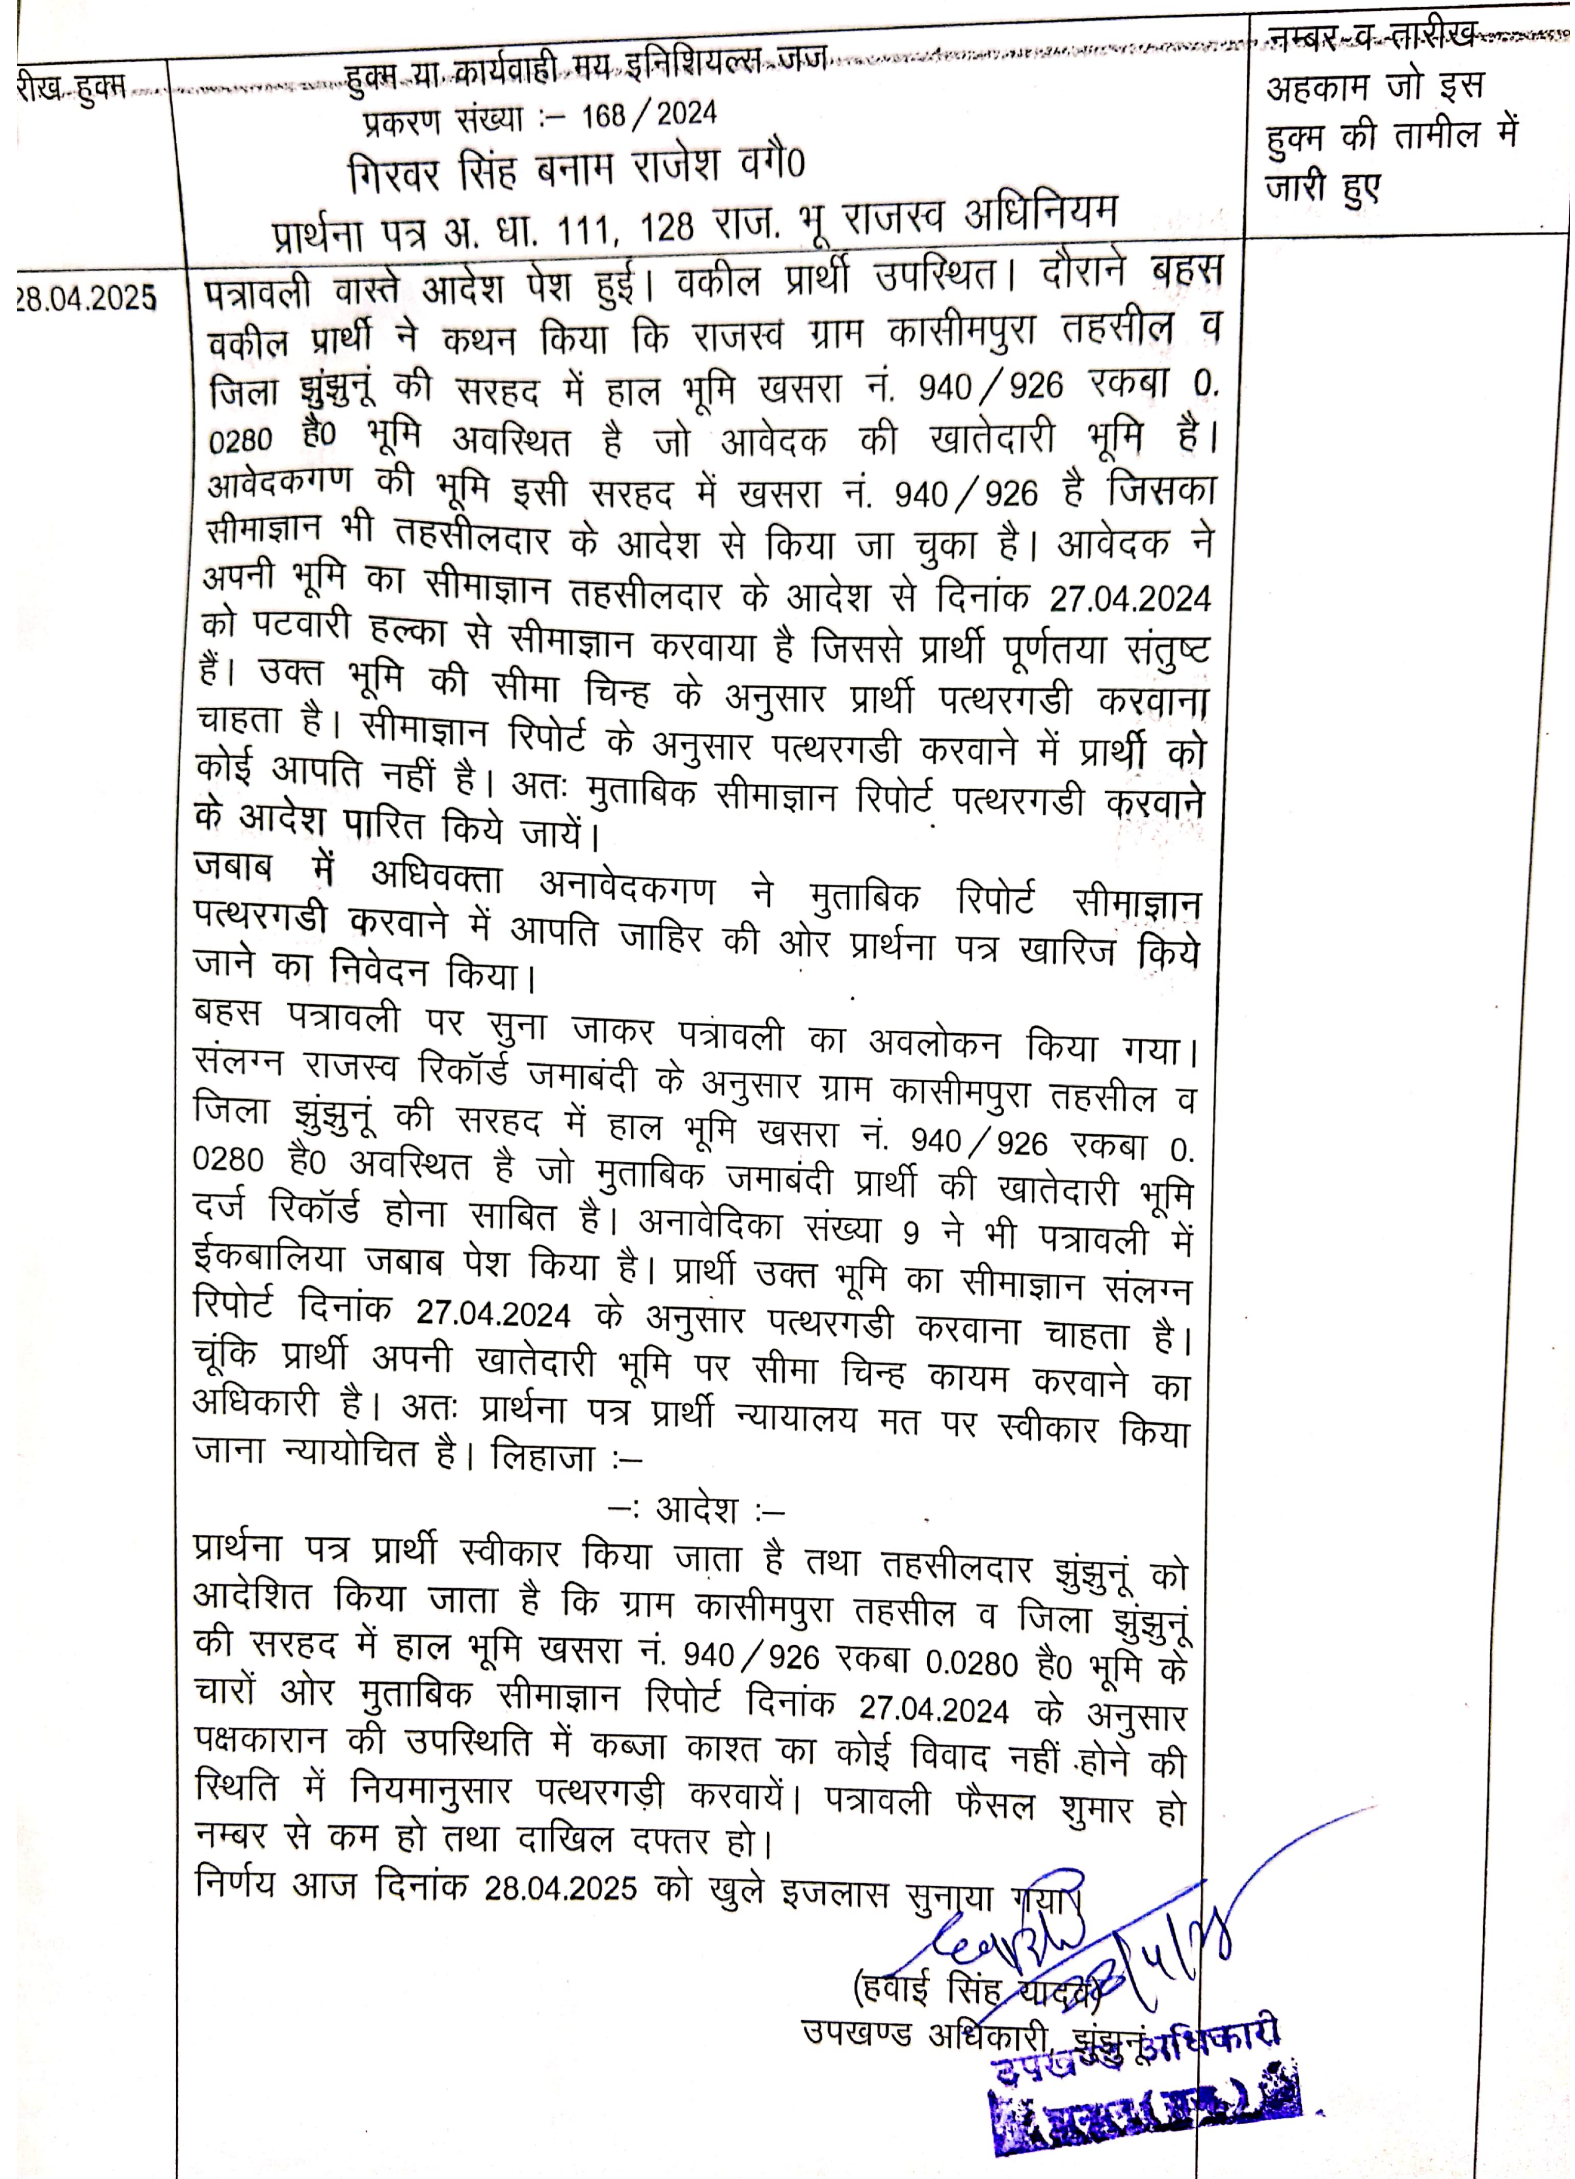 रीख हुक्म
हुक्म या कार्यवाही मय इनिशियल्स जज
प्रकरण संख्या :– 168/2024
गिरवर सिंह बनाम राजेश वगै0
प्रार्थना पत्र अ. धा. 111, 128 राज. भू राजस्व अधिनियम
नम्बर व तारीख
अहकाम जो इस
हुक्म की तामील में
जारी हुए
28.04.2025
पत्रावली वास्ते आदेश पेश हुई। वकील प्रार्थी उपस्थित। दौराने बहस
वकील प्रार्थी ने कथन किया कि राजस्व ग्राम कासीमपुरा तहसील व
जिला झुंझुनूं की सरहद में हाल भूमि खसरा नं. 940/926 रकबा 0.
0280 है0 भूमि अवस्थित है जो आवेदक की खातेदारी भूमि है।
आवेदकगण की भूमि इसी सरहद में खसरा नं. 940/926 है जिसका
सीमाज्ञान भी तहसीलदार के आदेश से किया जा चुका है। आवेदक ने
अपनी भूमि का सीमाज्ञान तहसीलदार के आदेश से दिनांक 27.04.2024
को पटवारी हल्का से सीमाज्ञान करवाया है जिससे प्रार्थी पूर्णतया संतुष्ट
हैं। उक्त भूमि की सीमा चिन्ह के अनुसार प्रार्थी पत्थरगडी करवाना
चाहता है। सीमाज्ञान रिपोर्ट के अनुसार पत्थरगडी करवाने में प्रार्थी को
कोई आपति नहीं है। अतः मुताबिक सीमाज्ञान रिपोर्ट पत्थरगडी करवाने
के आदेश पारित किये जायें।
जबाब में अधिवक्ता अनावेदकगण ने मुताबिक रिपोर्ट सीमाज्ञान
पत्थरगडी करवाने में आपति जाहिर की ओर प्रार्थना पत्र खारिज किये
जाने का निवेदन किया।
बहस पत्रावली पर सुना जाकर पत्रावली का अवलोकन किया गया।
संलग्न राजस्व रिकॉर्ड जमाबंदी के अनुसार ग्राम कासीमपुरा तहसील व
जिला झुंझुनूं की सरहद में हाल भूमि खसरा नं. 940/926 रकबा 0.
0280 है0 अवस्थित है जो मुताबिक जमाबंदी प्रार्थी की खातेदारी भूमि
दर्ज रिकॉर्ड होना साबित है। अनावेदिका संख्या 9 ने भी पत्रावली में
ईकबालिया जबाब पेश किया है। प्रार्थी उक्त भूमि का सीमाज्ञान संलग्न
रिपोर्ट दिनांक 27.04.2024 के अनुसार पत्थरगडी करवाना चाहता है।
चूंकि प्रार्थी अपनी खातेदारी भूमि पर सीमा चिन्ह कायम करवाने का
अधिकारी है। अतः प्रार्थना पत्र प्रार्थी न्यायालय मत पर स्वीकार किया
जाना न्यायोचित है। लिहाजा :–
–: आदेश :–
प्रार्थना पत्र प्रार्थी स्वीकार किया जाता है तथा तहसीलदार झुंझुनूं को
आदेशित किया जाता है कि ग्राम कासीमपुरा तहसील व जिला झुंझुनूं
की सरहद में हाल भूमि खसरा नं. 940/926 रकबा 0.0280 है0 भूमि के
चारों ओर मुताबिक सीमाज्ञान रिपोर्ट दिनांक 27.04.2024 के अनुसार
पक्षकारान की उपस्थिति में कब्जा काश्त का कोई विवाद नहीं होने की
स्थिति में नियमानुसार पत्थरगड़ी करवायें। पत्रावली फैसल शुमार हो
नम्बर से कम हो तथा दाखिल दफ्तर हो।
निर्णय आज दिनांक 28.04.2025 को खुले इजलास सुनाया गया।
(हवाई सिंह यादव)
उपखण्ड अधिकारी, झुंझुनूं
उपखण्ड अधिकारी